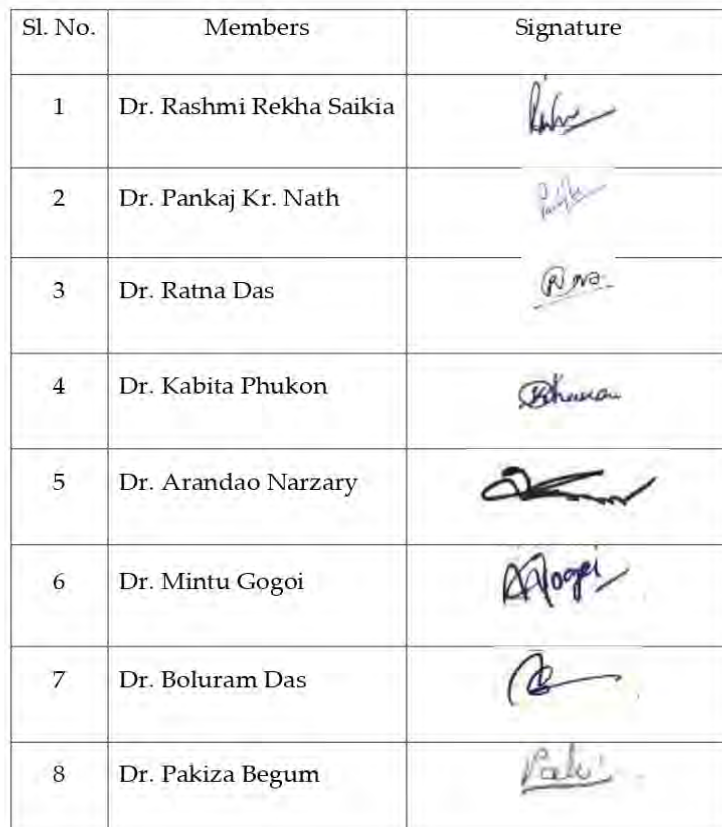 Sl. No. Members Signature
1 Dr. Rashmi Rekha Saikia
2 Dr. Pankaj Kr. Nath
3 Dr. Ratna Das
4 Dr. Kabita Phukon
5 Dr. Arandao Narzary
6 Dr. Mintu Gogoi
7 Dr. Boluram Das
8 Dr. Pakiza Begum